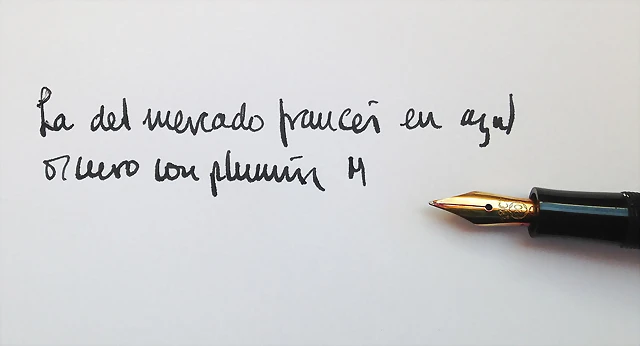 La del mercado francés en azul
oscuro con plumín M